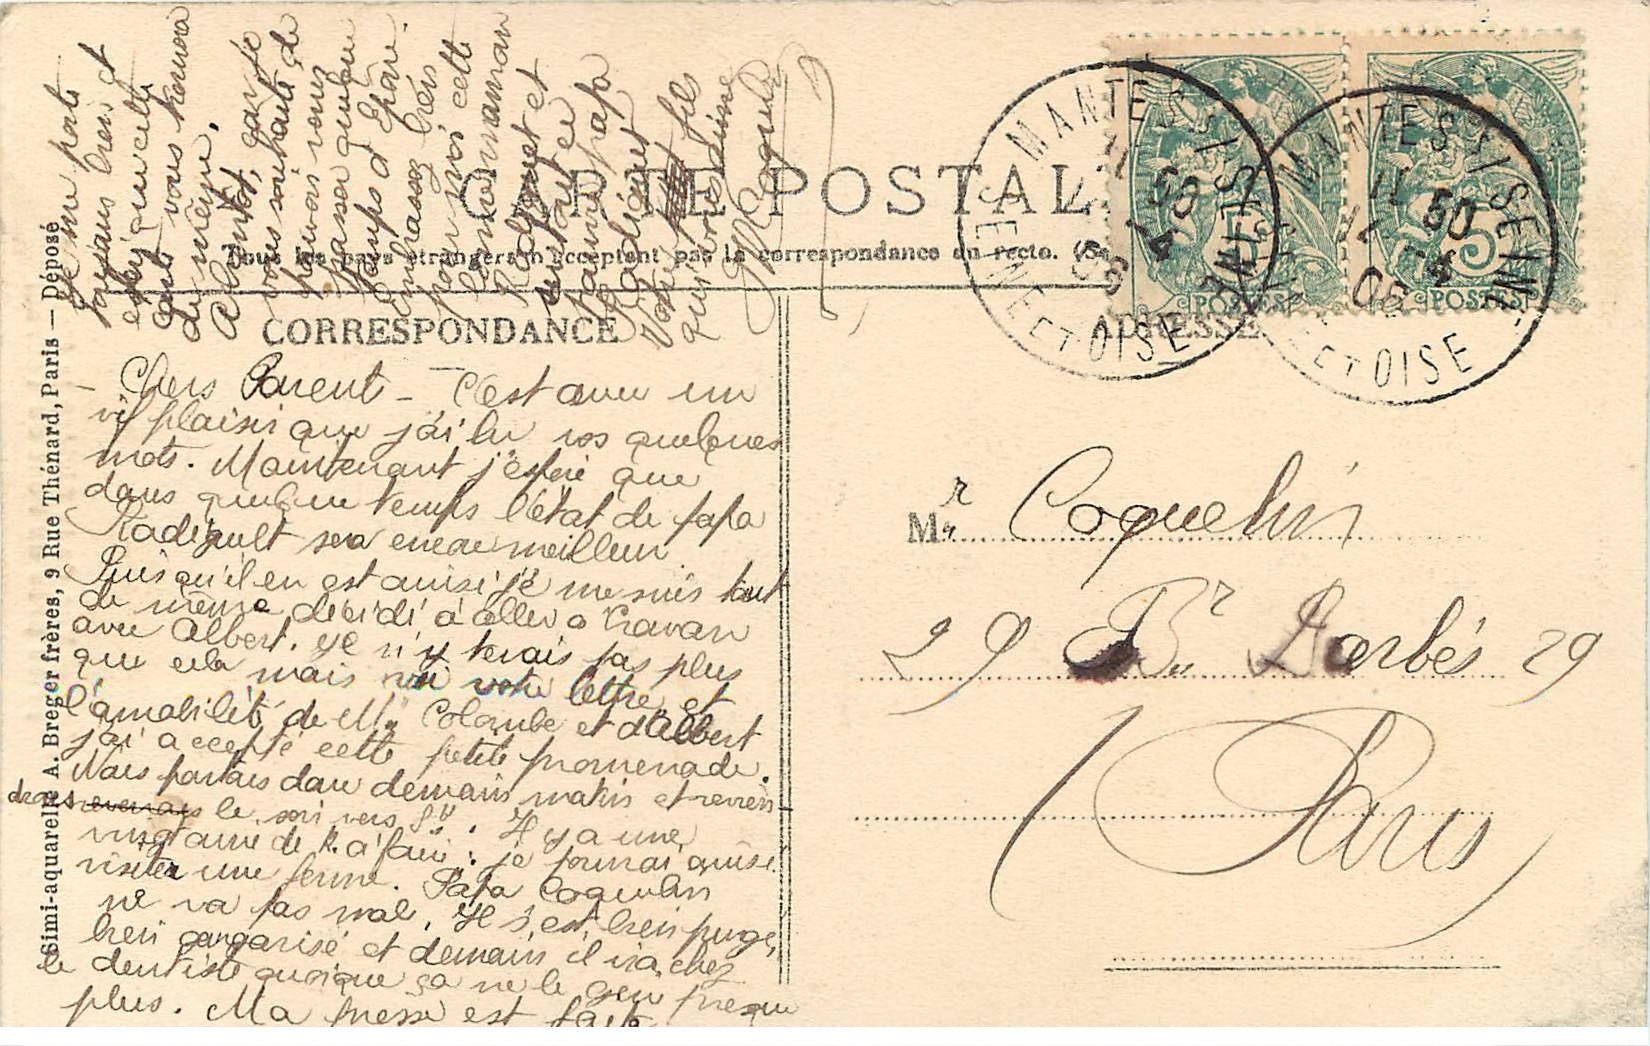 CARTE POSTALE
Tous les pays étrangers n'acceptent pas la correspondance au recto. (Se
CORRESPONDANCE
ADRESSE
Simi-aquarelle A. Breger frères, 9 Rue Thénard, Paris — Déposé
MANTES S/ SEINE
SEINE ET OISE
MANTES S/ SEINE
SEINE ET OISE
11 50
5
POSTES
5
POSTES
Chers Parents — C'est avec un
vif plaisir que j'ai lu vos quelques
mots. Maintenant j'espère que
dans quelque temps l'état de papa
Radigault sera encore meilleur
Puisqu'il en est ainsi je me suis tout
de même décidé à aller à Cravan
avec Albert. Je n'y tenais pas plus
que cela mais vu votre lettre et
l'amabilité de Me Colombe et d'Albert
j'ai accepté cette petite promenade.
Nous partons donc demain matin et revien
drons revenons le soir vers 8h. Il y a une
vingtaine de K. à faire : je pourrai ainsi
visiter une ferme. Papa Coquelin
ne va pas mal. Il s'est bien purgé,
bien gargarisé et demain il ira chez
le dentiste quoique ça ne le gêne presque
plus. Ma presse est faite
Je me porte
toujours bien et
espère que cette
carte vous trouvera
de même.
A bientôt,
vous souhaite de
pouvoir vous
passer quelque
temps d'
Embrassez bien
pour moi cette
bonne maman
et
surtout ce
pauvre papa
Radigault
Votre fils
qui
G Coquelin
Mr Coquelin
29 Bd Barbés 29
Paris